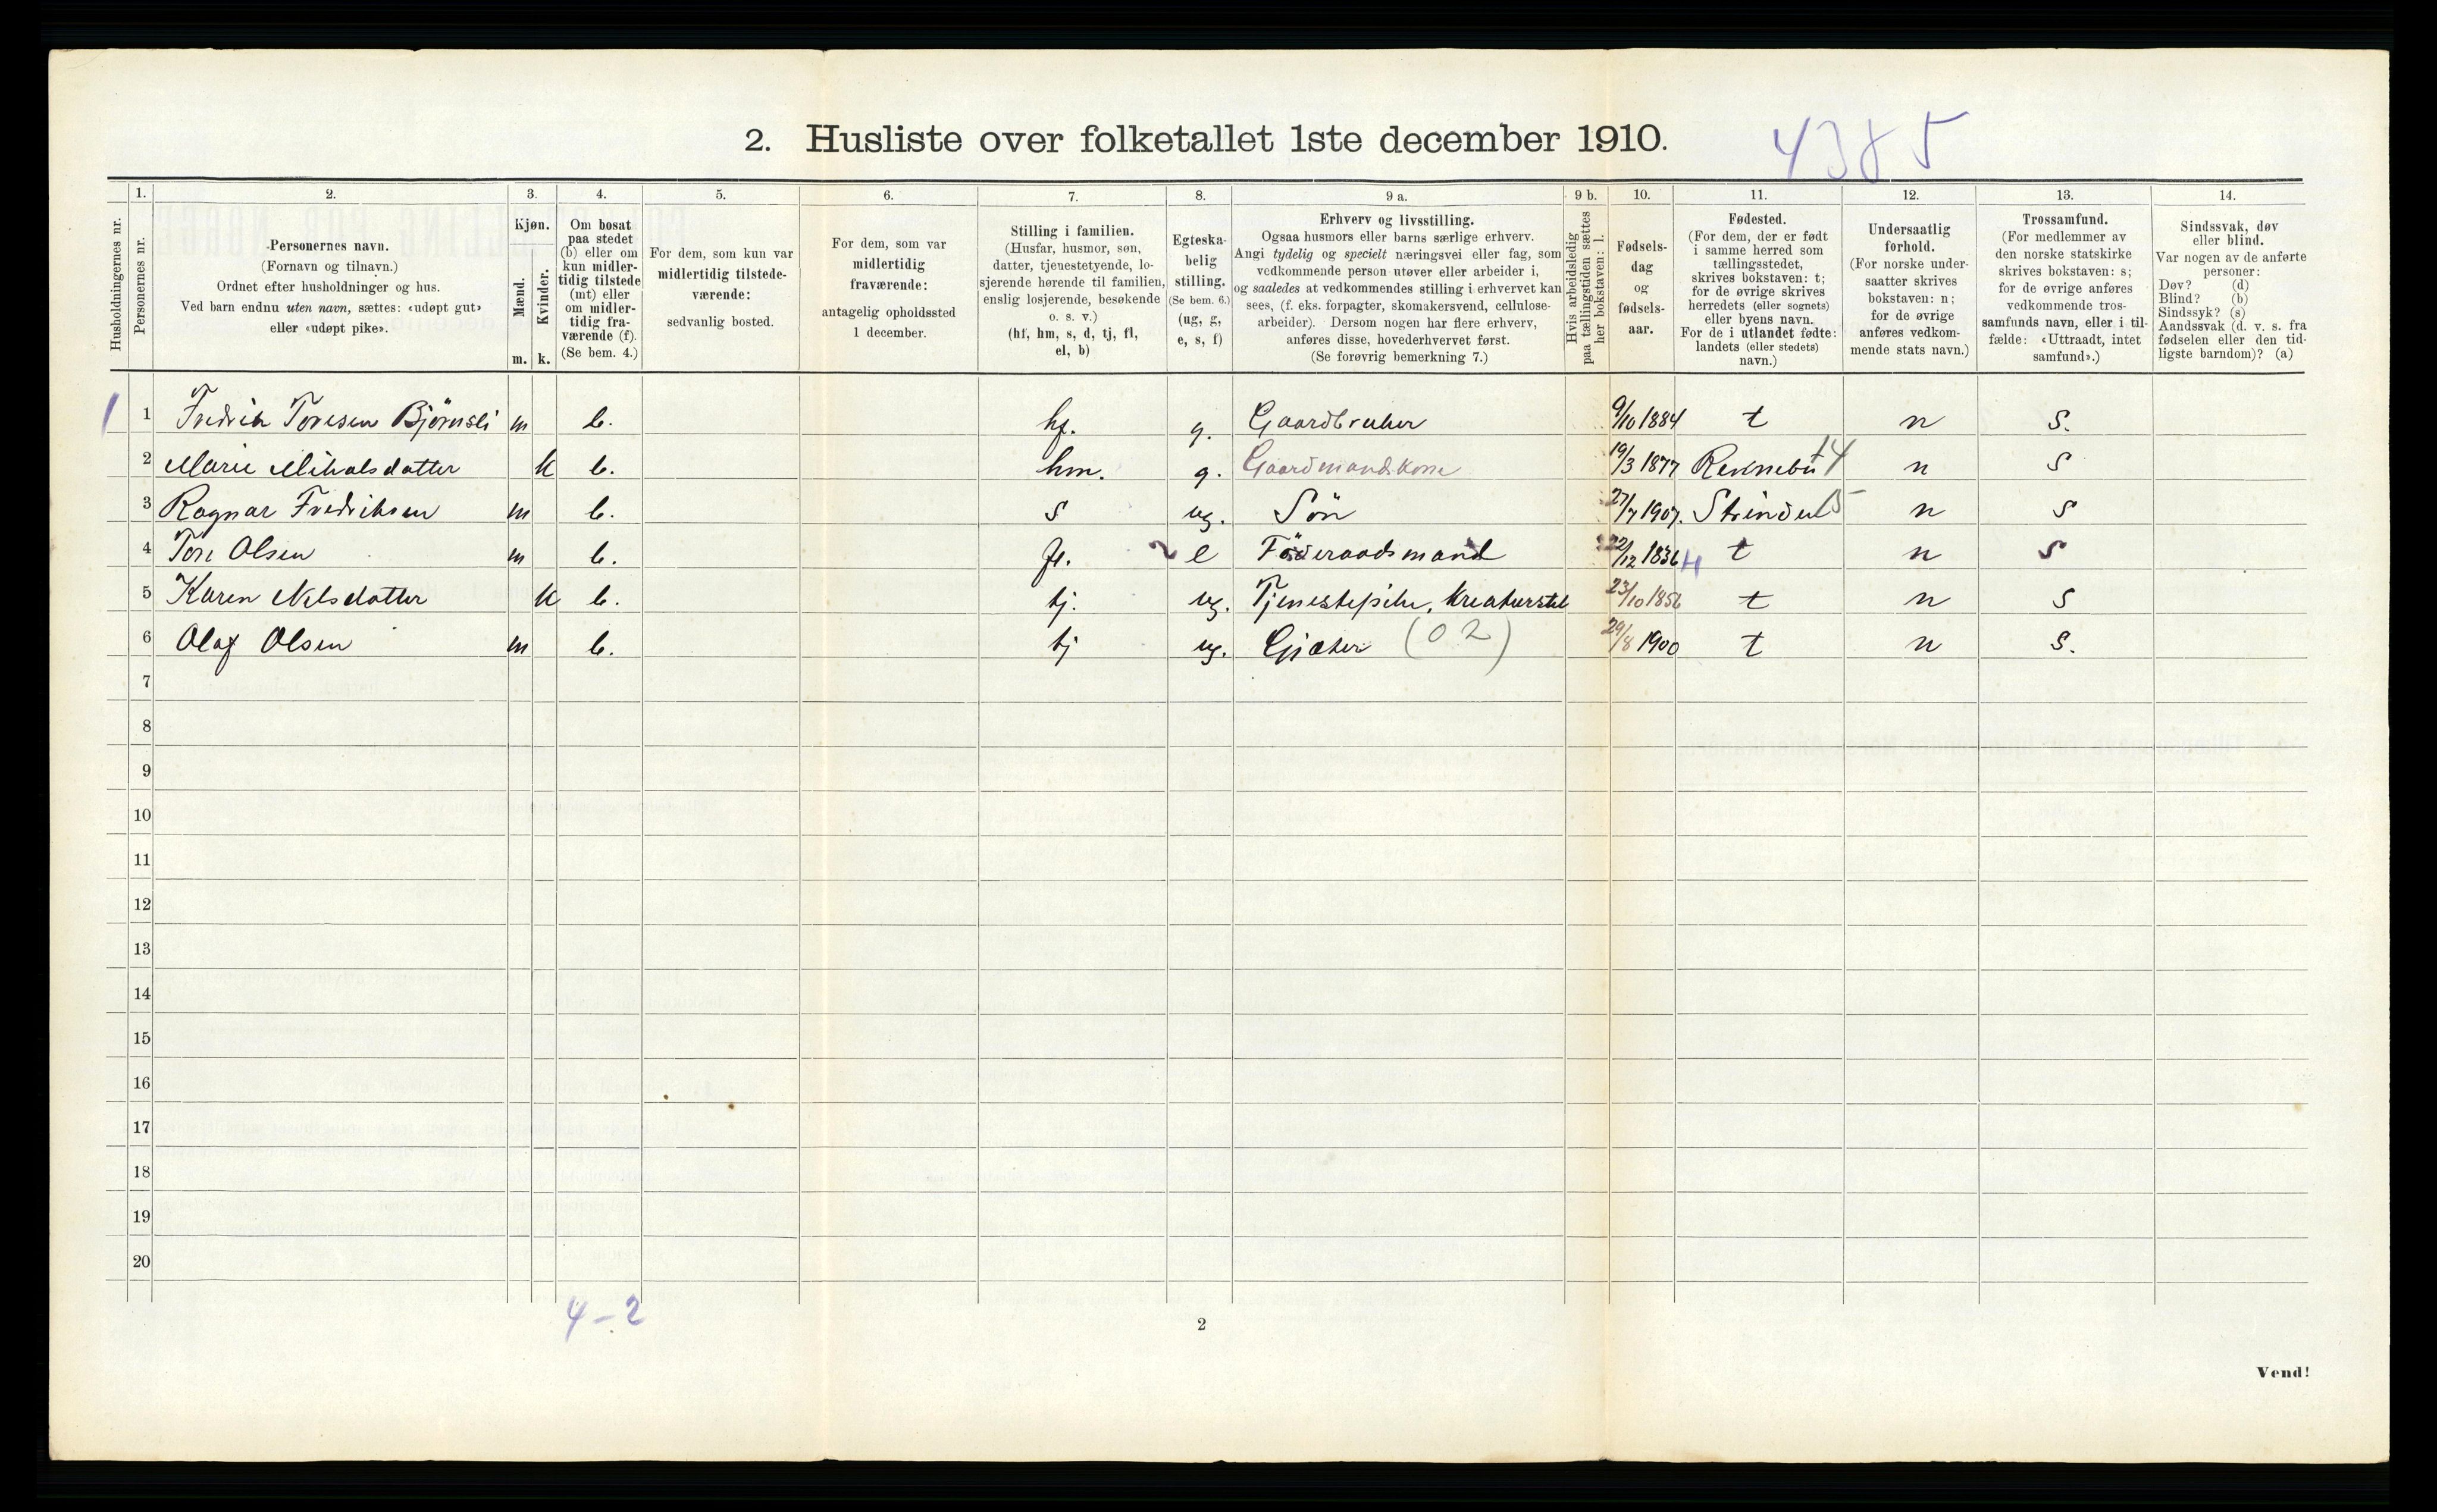 2. Husliste over folketallet 1ste december 1910.
4385
1. 2. 3. 4. 5. 6. 7. 8. 9 a. 9 b. 10. 11. 12. 13. 14.
Husholdningernes nr.
Personernes nr.
Personernes navn.
(Fornavn og tilnavn.)
Ordnet efter husholdninger og hus.
Ved barn endnu uten navn, sættes: «udøpt gut»
eller «udøpt pike».
Kjøn.
Mænd.
Kvinder.
m. k.
Om bosat
paa stedet
(b) eller om
kun midler-
tidig tilstede
(mt) eller
om midler-
tidig fra-
værende (f).
(Se bem. 4.)
For dem, som kun var
midlertidig tilstede-
værende:
sedvanlig bosted.
For dem, som var
midlertidig
fraværende:
antagelig opholdssted
1 december.
Stilling i familien.
(Husfar, husmor, søn,
datter, tjenestetyende, lo-
sjerende hørende til familien,
enslig losjerende, besøkende
o. s. v.)
(hf, hm, s, d, tj, fl,
el, b)
Egteska-
belig
stilling.
(Se bem. 6.)
(ug, g,
e, s, f)
Erhverv og livsstilling.
Ogsaa husmors eller barns særlige erhverv.
Angi tydelig og specielt næringsvei eller fag, som
vedkommende person utøver eller arbeider i,
og saaledes at vedkommendes stilling i erhvervet kan
sees, (f. eks. forpagter, skomakersvend, cellulose-
arbeider). Dersom nogen har flere erhverv,
anføres disse, hovederhvervet først.
(Se forøvrig bemerkning 7.)
Hvis arbeidsledig
paa tællingstiden sættes
her bokstaven: l.
Fødsels-
dag
og
fødsels-
aar.
Fødested.
(For dem, der er født
i samme herred som
tællingsstedet,
skrives bokstaven: t;
for de øvrige skrives
herredets (eller sognets)
eller byens navn.
For de i utlandet fødte:
landets (eller stedets)
navn.)
Undersaatlig
forhold.
(For norske under-
saatter skrives
bokstaven: n;
for de øvrige
anføres vedkom-
mende stats navn.)
Trossamfund.
(For medlemmer av
den norske statskirke
skrives bokstaven: s;
for de øvrige anføres
vedkommende tros-
samfunds navn, eller i til-
fælde: «Uttraadt, intet
samfund».)
Sindssvak, døv
eller blind.
Var nogen av de anførte
personer:
Døv? (d)
Blind? (b)
Sindssyk? (s)
Aandssvak (d. v. s. fra
fødselen eller den tid-
ligste barndom)? (a)
1 1 Fredrik Toresen Björnsli m b. hf. g. Gaardbruker 9/10 1884 t n S.
2 Marie Mikalsdatter k b. hm. g. Gaardmandskone 19/3 1877 n S
3 Ragnar Fredriksen m b. S ug. Sön 27/7 1907. Strinden n S
4 Tore Olsen m b. fl. e Föderaadsmand 22/12 1836 t n S
5 Karen Nelsdatter k b. tj. ug. Tjenestepike, kreaturstel 23/10 1856 t n S
6 Olaf Olsen m b. tj ug. Gjæter (02) 29/8 1900 t n S.
7
8
9
10
11
12
13
14
15
16
17
18
19
20
4-2
2
Vend!